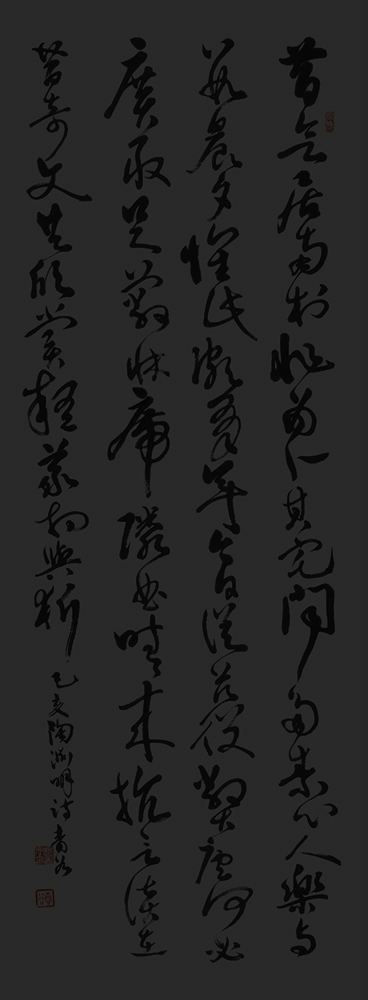 昔欲居南村非為卜其宅聞多素心人樂與
數晨夕懷此頗有年今日從茲役敝廬何必
廣取足蔽牀席隣曲時々來抗言談在
昔奇文共欣賞疑義相與析
己亥陶淵明詩